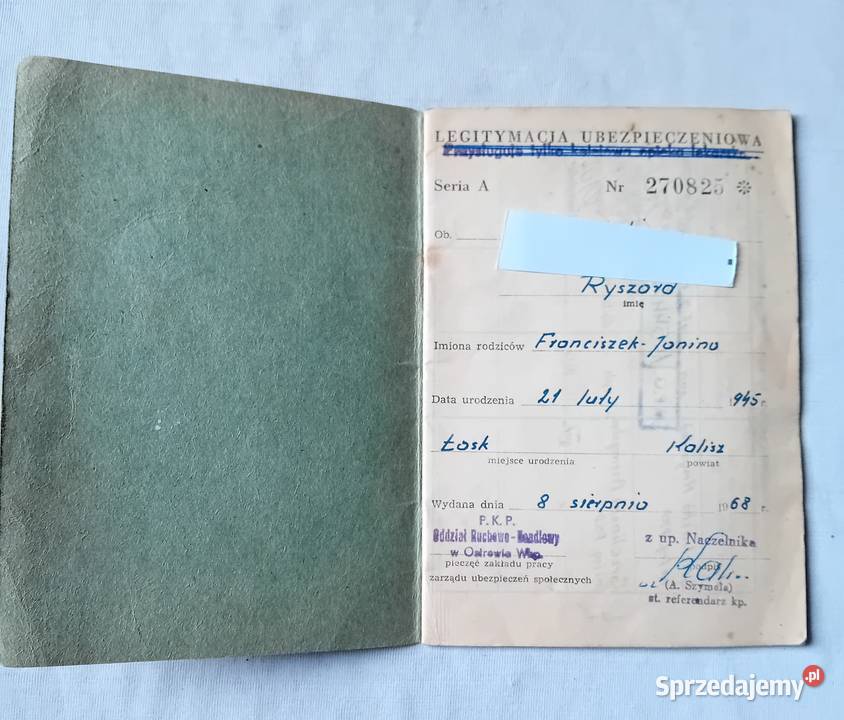 LEGITYMACJA UBEZPIECZENIOWA
Przysługuje tylko
Seria A Nr 270825 *
Ob.
Ryszard
imię
Imiona rodziców Franciszek-Janina
Data urodzenia 21 luty 1945 r.
Łask Kalisz
miejsce urodzenia powiat
Wydana dnia 8 sierpnia 1968 r.
P.K.P.
Oddział Ruchowo-Handlowy
w Ostrowie Wlkp.
pieczęć zakładu pracy
zarządu ubezpieczeń społecznych
z up. Naczelnika
podpis
(A. Szymela)
st. referendarz kp.
Sprzedajemy.pl